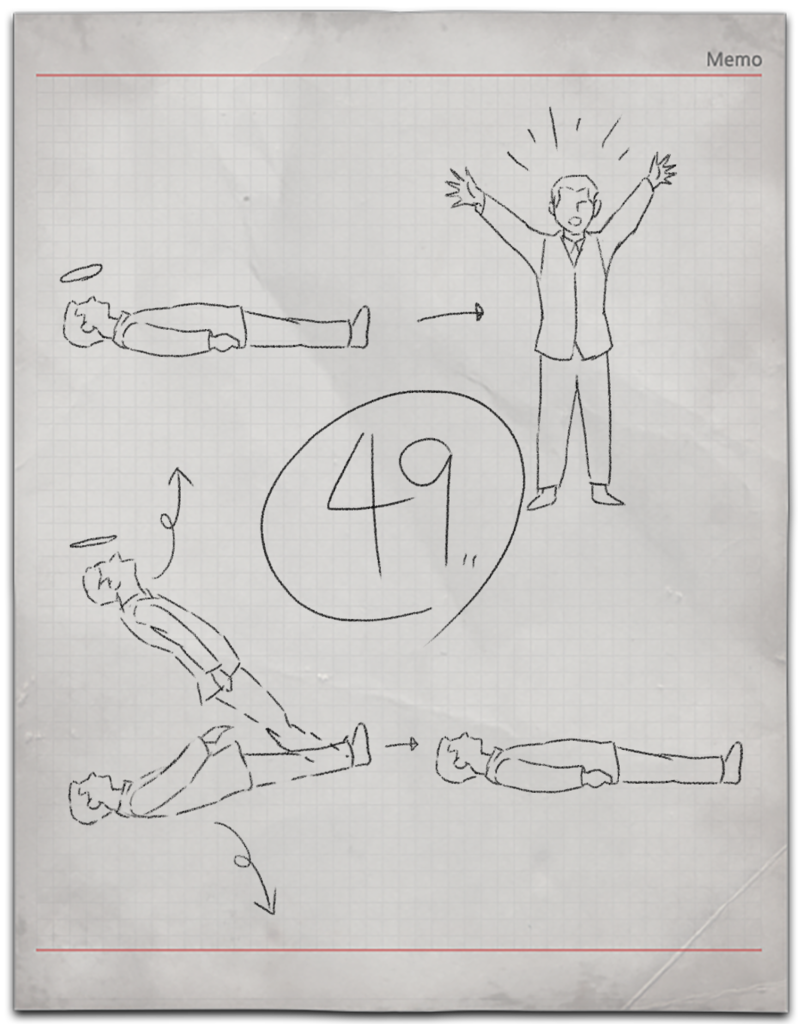 Memo
49"